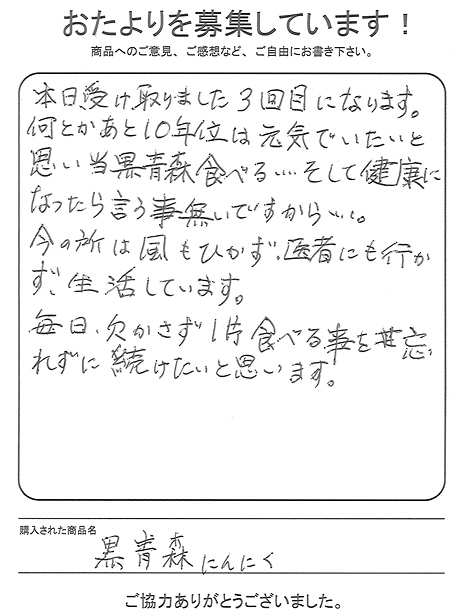 おたよりを募集しています！
商品へのご意見、ご感想など、ご自由にお書き下さい。
本日受け取りました3回目になります。
何とかあと10年位は元気でいたいと
思い当黒青森食べる…そして健康に
なったら言う事無いですから…。
今の所は風もひかず、医者にも行か
ず、生活しています。
毎日、欠かさず1片食べる事を忘
れずに続けたいと思います。
購入された商品名
黒青森にんにく
ご協力ありがとうございました。